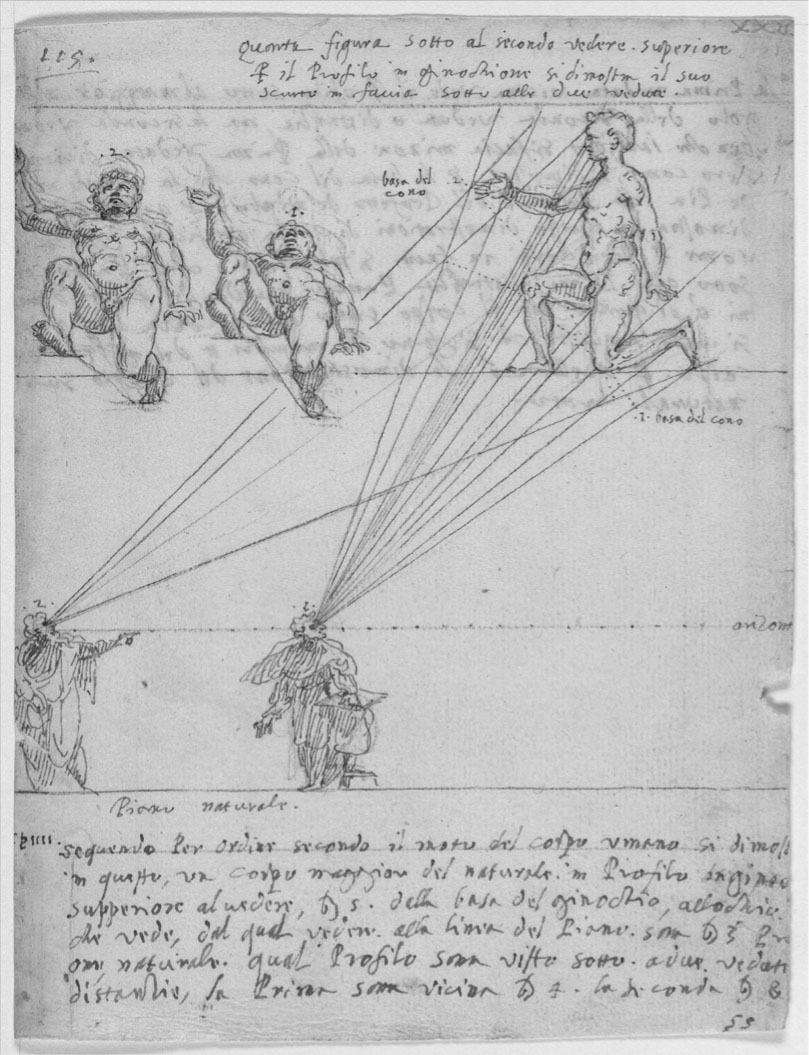 115.
Quarta figura sotto al secondo vedere. superiore
P il Profilo in ginochione si dimostra il suo
scurto in facia sotto alle due vedute
.2.
.1.
basa del .2.
cono
.1. basa del cono
.2.
.1.
orizon
Piano naturale.
sequendo Per ordine secondo il moto del corpo vmano si dimost
in questo, vn corpo magegior del naturale. in Profilo inginoc
supperiore al vedere, 5. dalla basa del ginochio, allochio
che vede, dal qual vedere. alla linea del Piano. sono 3
naturale. qual Profilo sara visto sotto. a due vedute
distantie, la Prima sara vicina 4. la seconda 8
55